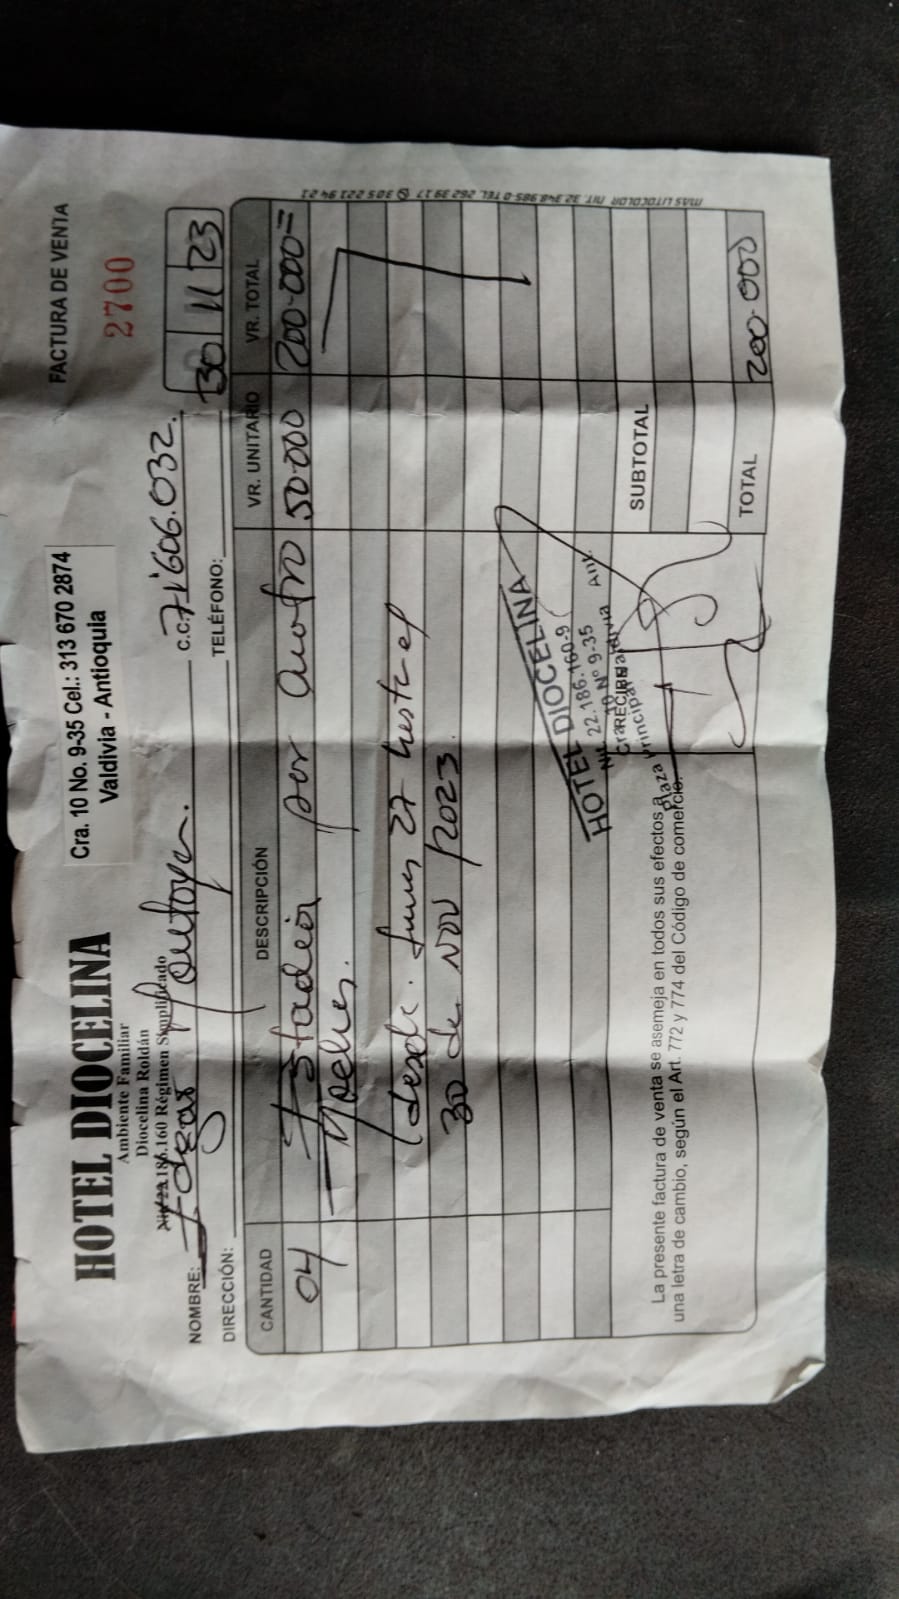 HOTEL DIOCELINA
Ambiente Familiar
Diocelina Roldán
Nit 22.186.160 Régimen Simplificado
Cra. 10 No. 9-35 Cel.: 313 670 2874
Valdivia - Antioquia
FACTURA DE VENTA
2700
NOMBRE: Edgar Montoya. C.C. 71'606.032.
30 11 23
DIRECCIÓN: TELÉFONO:
CANTIDAD DESCRIPCIÓN VR. UNITARIO VR. TOTAL
04 Estadia por cuatro 50.000 200.000=
Noches.
desde. lunes 27 hasta el
30 de Nov/2023.
HOTEL DIOCELINA
Nit. 22.186.160-9
Cra. 10 Nº 9-35
Plaza Principal Valdivia Ant.
RECIBE
SUBTOTAL
La presente factura de venta se asemeja en todos sus efectos a
una letra de cambio, según el Art. 772 y 774 del Código de comercio.
TOTAL 200.000
MAS LITOCOLOR NIT. 32.348.985-0 TEL. 262 39 17 305 221 94 21